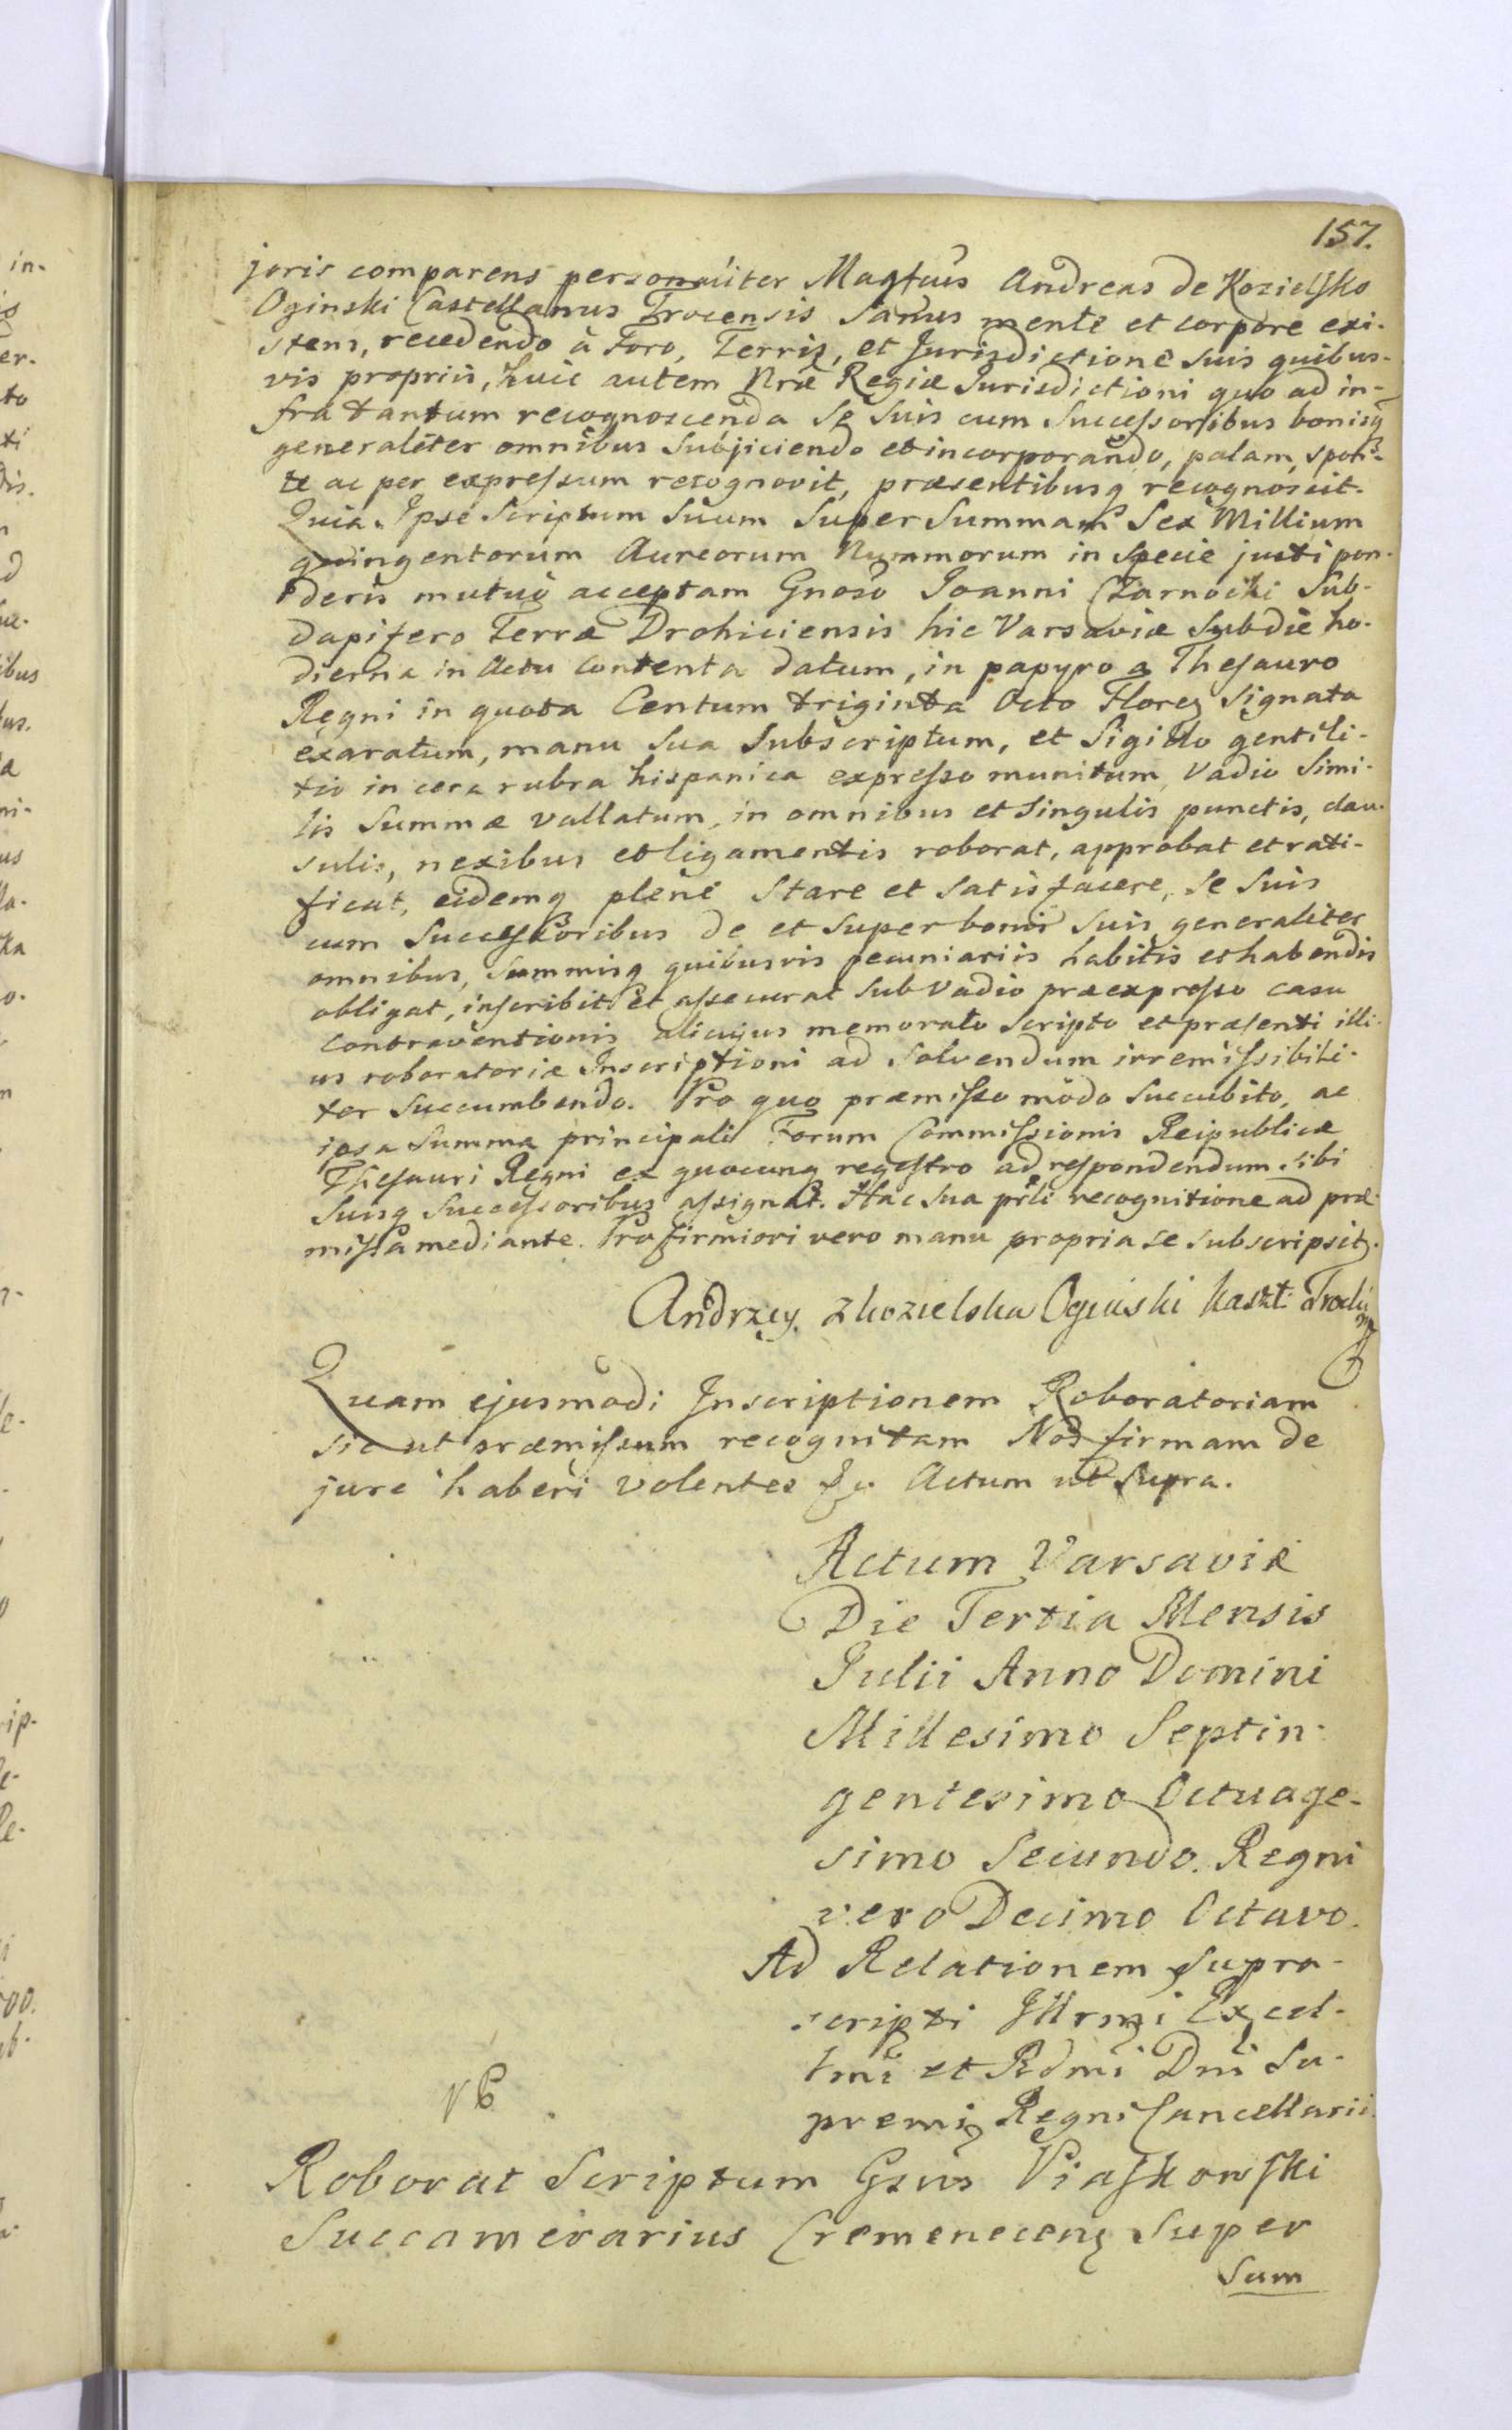 157.
joris comparens personaliter Magfcus Andreas de Kozielsko
Oginski Castellanus Trocensis Sanus mente et corpore exi-
stens, recedendo à Foro, Terris, et Jurisdictione suis quibus-
vis propriis, huic autem Nrae Regiae Jurisdictioni quo ad in-
fra tantum recognoscenda se suis cum Successoribus bonisq
generaliter omnibus subjiciendo et incorporando, palam, spon-
te ac per expressum recognovit, praesentibusq recognoscit.
Quia Ipse Scriptum suum super Summam Sex Millium
quingentorum Aureorum Nummorum in specie justi pon-
deris mutuò acceptam Gnoso Joanni Czarnocki Sub-
dapifero Terrae Drohiciensis hic Varsaviae Sub die ho-
dierna in Actu contenta datum, in papyro a Thesauro
Regni in quota Centum triginta Octo Flores signata
exaratum, manu sua Subscriptum, et Sigillo gentili-
tio in cera rubra hispanica expresso munitum, Vadio Simi-
lis Summae vallatum, in omnibus et Singulis punctis, clau-
sulis, nexibus et ligamentis roborat, approbat et rati-
ficat, eidemq plenè Stare et satisfacere, se suis
cum Successoribus de et super bonis suis generaliter
omnibus, Summisq quibusvis pecuniariis habitis et habendis
obligat, inscribit et assecurat sub Vadio praeexpresso casu
Contraventionis alicujus memorato Scripto et praesenti illi-
us roboratoriae Inscriptioni ad solvendum irremissibili-
ter Succumbendo. Pro quo praemisso modo Succubito, ac
ipsa Summa principali Forum Commissionis Reipublicae
Thesauri Regni ex quocunq regestro ad respondendum sibi
suisq Successoribus assignat. Hac sua prŭli recognitione ad prae-
missa mediante. Pro firmiori vero manu propria se subscripsit.
Andrzey z Kozielska Oginski Kaszt:
Quam ejusmodi Inscriptionem Roboratoriam
sic ut praemissum recognitam Nos firmam de
jure haberi volentes &c. Actum ut Supra.
Actum Varsaviae
Die Tertia Mensis
Julii Anno Domini
Millesimo Septin-
gentesimo Octuage-
simo Secundo. Regni
vero Decimo Octavo.
Ad Relationem Supra-
scripti Illrmi Excel-
lmi et Rdmi Dni Su-
premi Regni Cancellarii.
Roborat Scriptum Gsus Piaskowski
Succamerarius Cremenecens Super
Sum